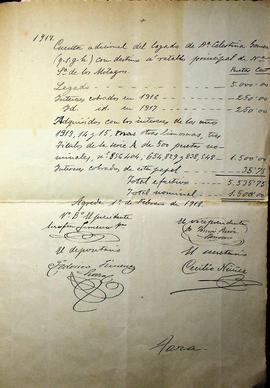 1917.
Cuenta adicional del legado de Dª Celestina
(q.s.g.h.) con destino a retablo principal de Nª
Sª de los Milagros.
Pesetas Cént
Legado 5.000=00
Intereses cobrados en 1916 250=00
Id. id. en 1917 250=00
Adquiridos con los intereses de los años
1913, 14 y 15, mas otras limosnas, tres
Títulos de la serie A de 500 pesetas no-
minales, nº 1.500=00
Intereses cobrados de este papel 35'75
Total efectivo 5.535'75
Total nominal 1.500'00
Agreda 1º de Febrero de 1918.
Vº Bº El presidente
El vicepresidente
El depositario
El secretario
Cecilio Núñez